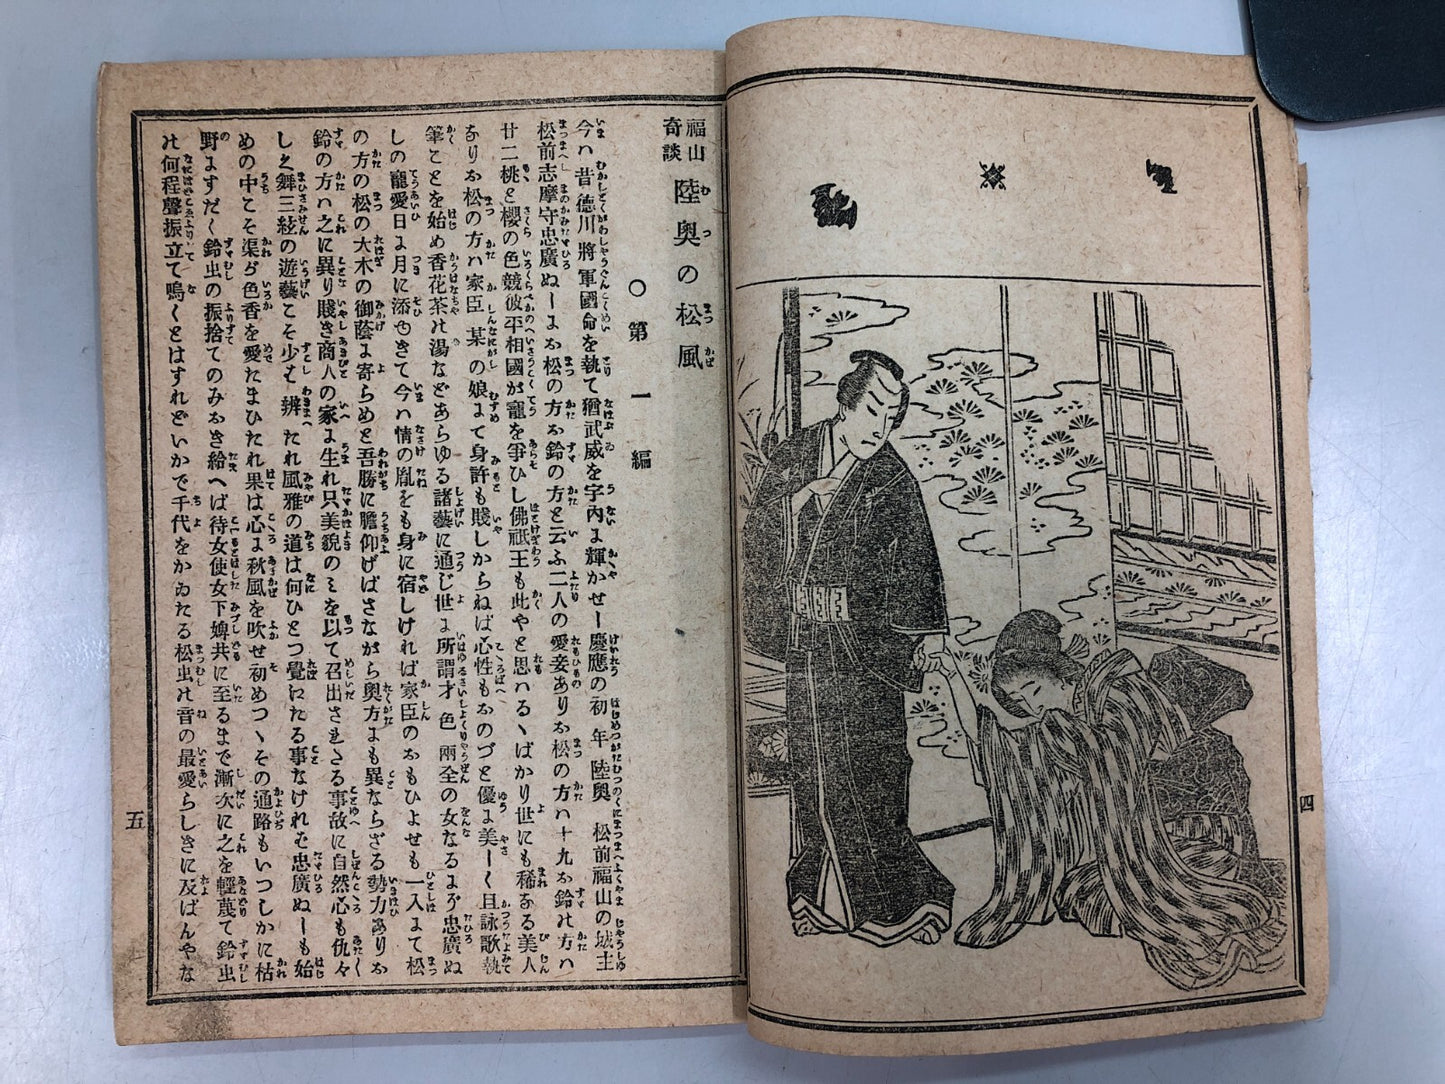 四
福山
奇談
陸奥の松風
○第一編
今ハ昔德川將軍國命を執て猶武威を宇內ま輝かせし慶應の初年陸奥松前福山の城主
松前志摩守忠廣ぬしまお松の方お鈴の方と云ふ二人の愛妾ありお松の方ハ十九お鈴の方ハ
廿二桃と櫻の色競彼平相國が寵を爭ひし佛祇王も此やと思ハるヽばかり世にも稀ある美人
ありお松の方ハ家臣某の娘まて身許も賤しからねば心性もおのづと優ま美しく且詠歌執
筆ことを始め香花茶の湯などあらゆる諸藝に通じ世ま所謂才色兩全の女なるまぞ忠廣ぬ
しの寵愛日ま月に添ゆきて今ハ情の胤をも身に宿しければ家臣のおもひよせも一入まて松
の方の松の大木の御蔭ま寄らめと吾勝に膽仰げばさながら奥方まも異ならざる勢力ありお
鈴の方ハ之に異り賤き商人の家ま生れ只美貌のミを以て召出されたる事故に自然心も仇々
しく舞三絃の遊藝こそ少しく辨たれ風雅の道は何ひとつ覺にたる事なけれど忠廣ぬしも始
めの中こそ渠が色香を愛たまひたれ果は心ま秋風を吹せ初めつヽその通路もいつしかに枯
野ますだく鈴虫の振捨てのみおき給へば待女使女下婢共に至るまで漸次に之を輕蔑て鈴虫
の何程聲振立て鳴くとはすれどいかで千代をかゐたる松虫の音の最愛らしきに及ばんやな
五